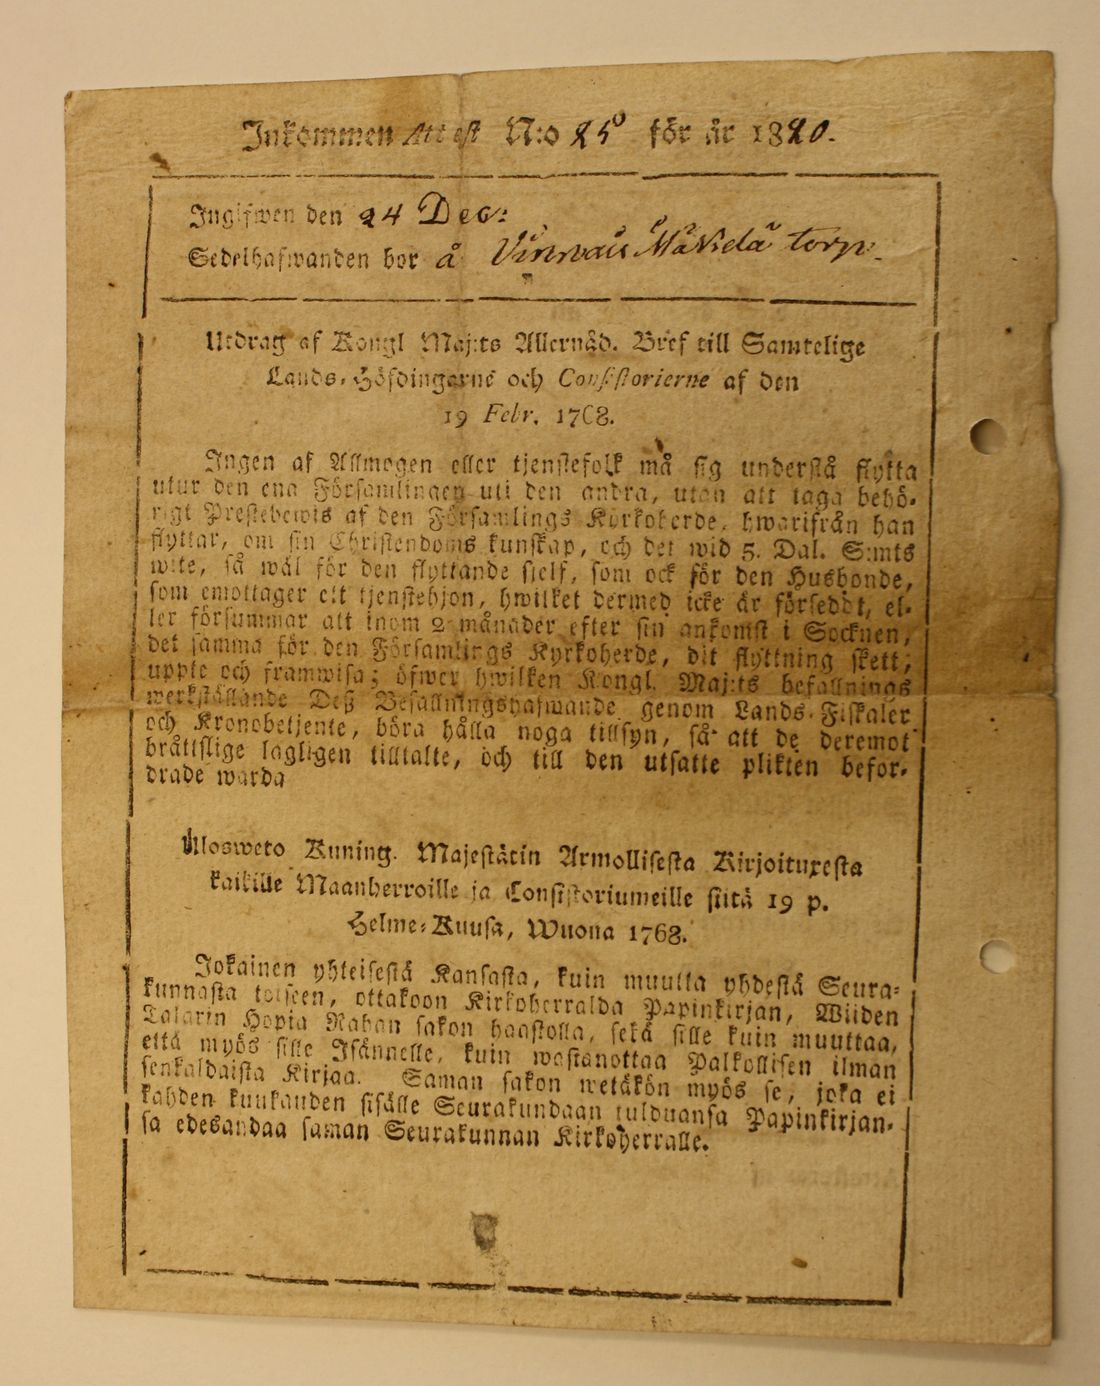 Inkommen Attest N:o 25 för år 1820.
Ingifwen den 24 Dec:
Sedelhafwanden bor å Mäkelä torp.
Utdrag af Kongl Maj:ts Allernåd. Bref till Samtelige
Lands-Höfdingarne och Consistorierne af den
19 Febr. 1768.
Ingen af Allmogen eller tjenstefolk må sig understå flytta
utur den ena Församlingen uti den andra, utan att taga behö-
rigt Prestebewis af den Församlings Kyrkoherde, hwarifrån han
flyttar, om sin Christendoms kunskap, och det wid 5. Dal. S:mts
wite, så wäl för den flyttande sjelf, som ock för den Husbonde,
som emottager ett tjenstehjon, hwilket dermed icke är förseddt, el-
ler försummar att inom 2 månader efter sin ankomst i Socknen,
det samma för den Församlings Kyrkoherde, dit flyttning skett,
uppte och framwisa; öfwer hwilken Kongl. Maj:ts befallnings
werkställande Deß Befallningshafwande genom Lands-Fiskaler
och Kronobetjente, böra hålla noga tillsyn, så att de deremot
bråttslige lagligen tilltalte, och till den utsatte plikten befor-
drade warda
Ulosweto Kuning. Majestätin Armollisesta Kirjoituxesta
kaikille Maanherroille ja Consistoriumeille siitä 19 p.
Helme-Kuusa, Wuona 1768.
Jokainen yhteisestä Kansasta, kuin muutta yhdestä Seura-
kunnasta toiseen, ottakoon Kirkoherralda Papinkirjan, Wiiden
Talarin Hopia Rahan sakon haastolla, sekä sille kuin muuttaa,
että myös sille Isännelle, kuin wastanottaa Palkollisen ilman
senkaldaista Kirjaa. Saman sakon wetäkön myös se, joka ei
kahden kuukauden sisälle Seurakundaan tulduansa Papinkirjan-
sa edesandaa saman Seurakunnan Kirkoherralle.